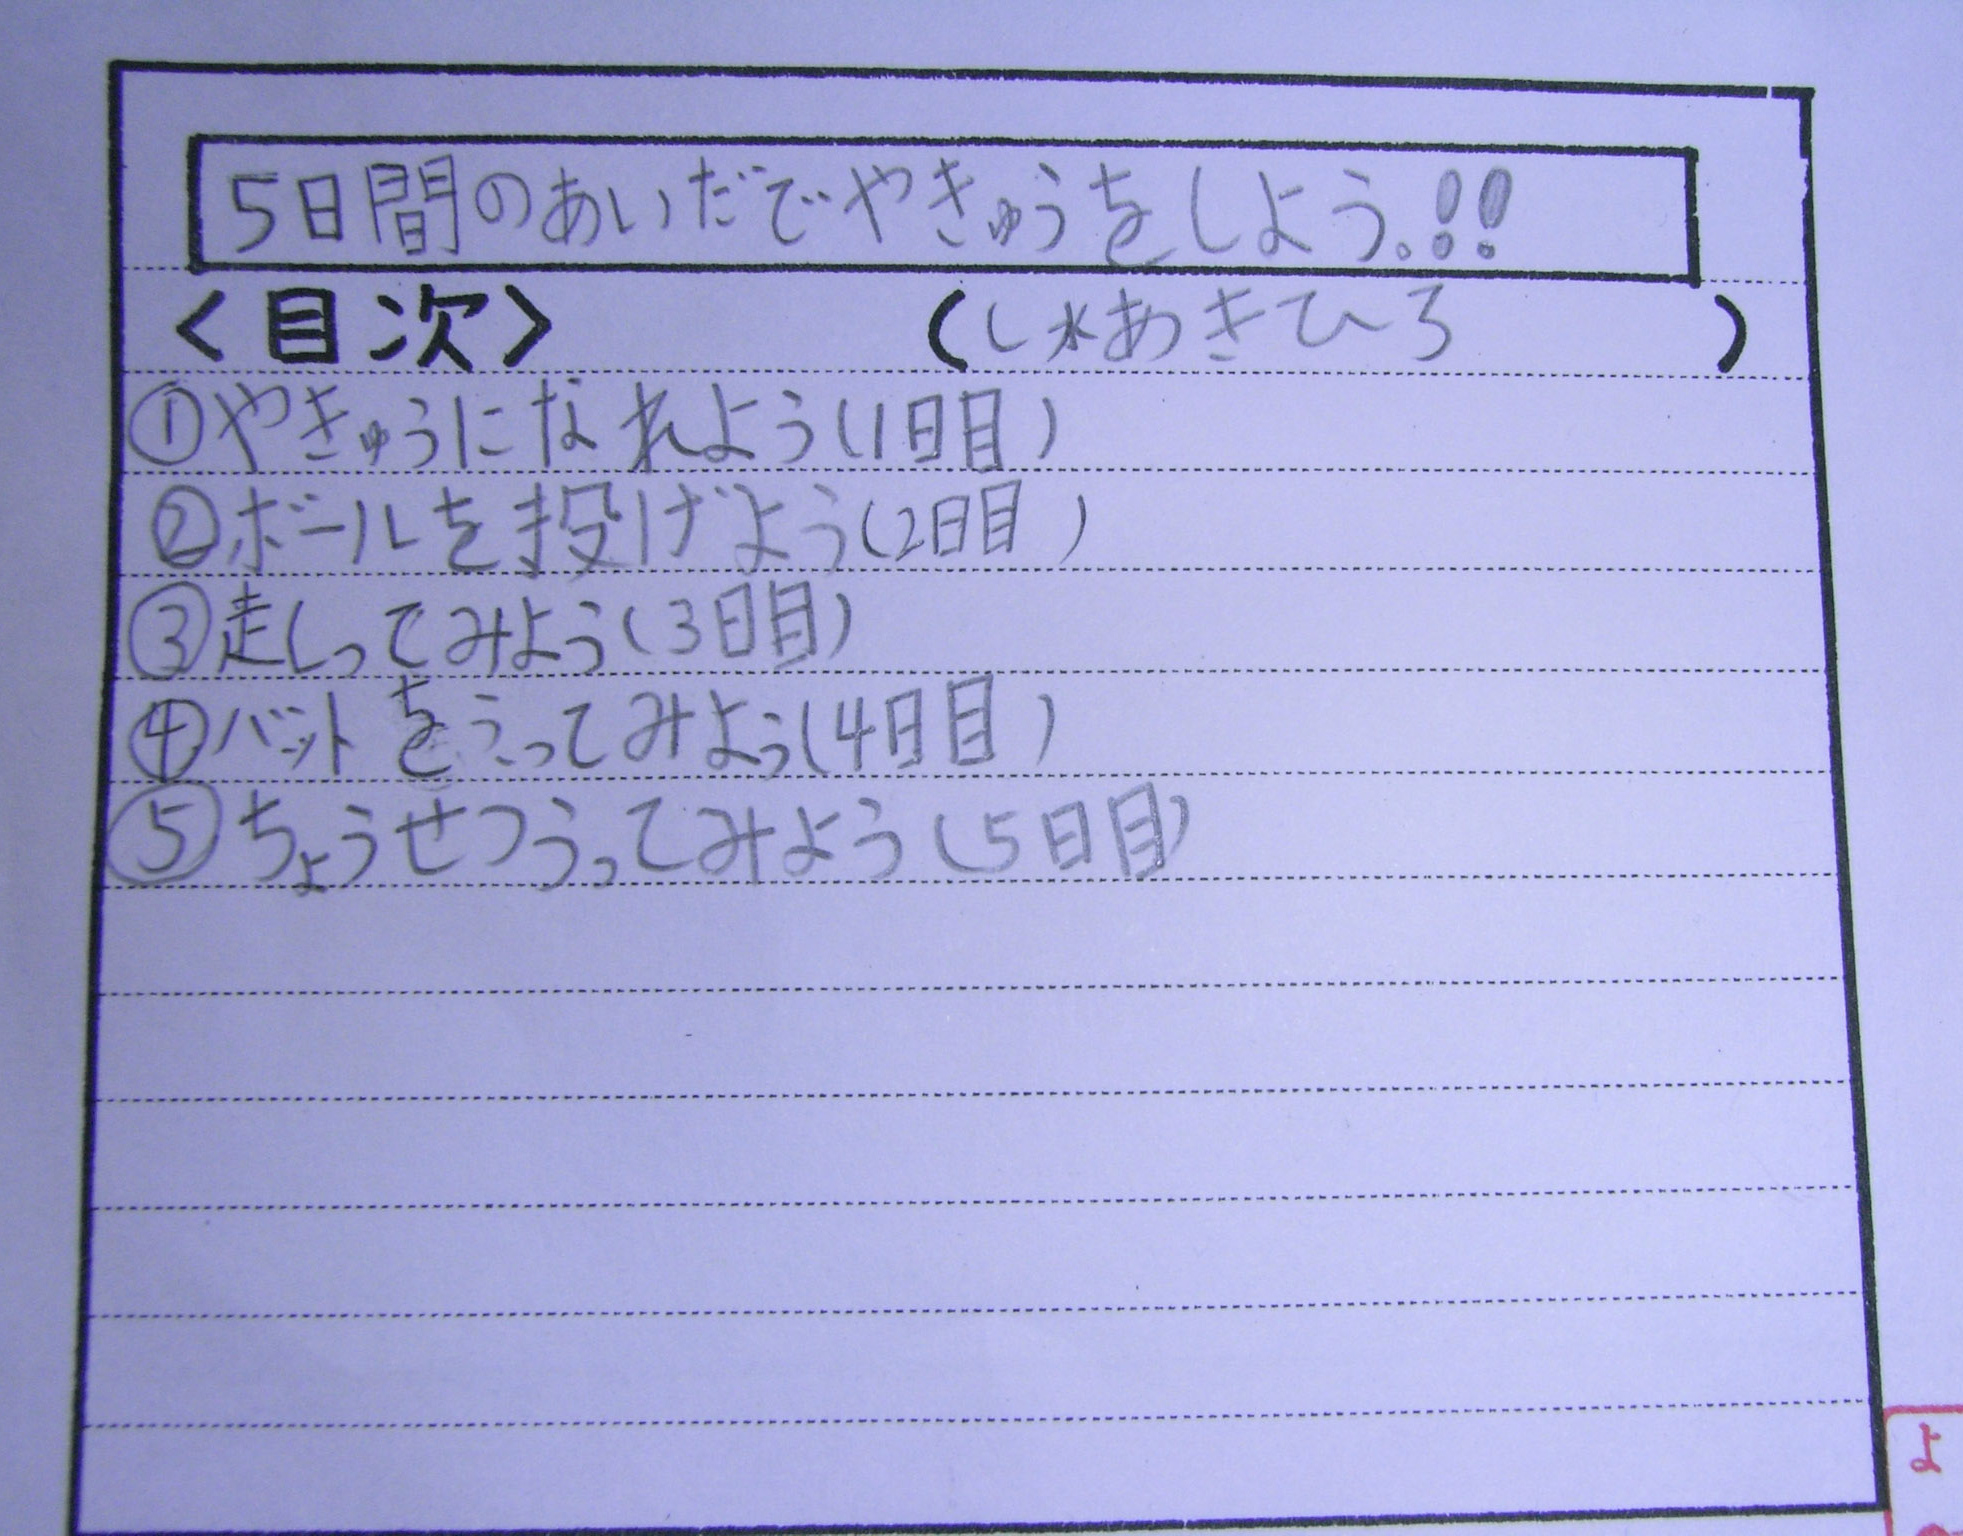 5日間のあいだでやきゅうをしよう。!!
<目次> (し水あきひろ)
①やきゅうになれよう(1日目)
②ボールを投げよう(2日目)
③走しってみよう(3日目)
④バットをうってみよう(4日目)
⑤ちょうせつうってみよう(5日目)
よ